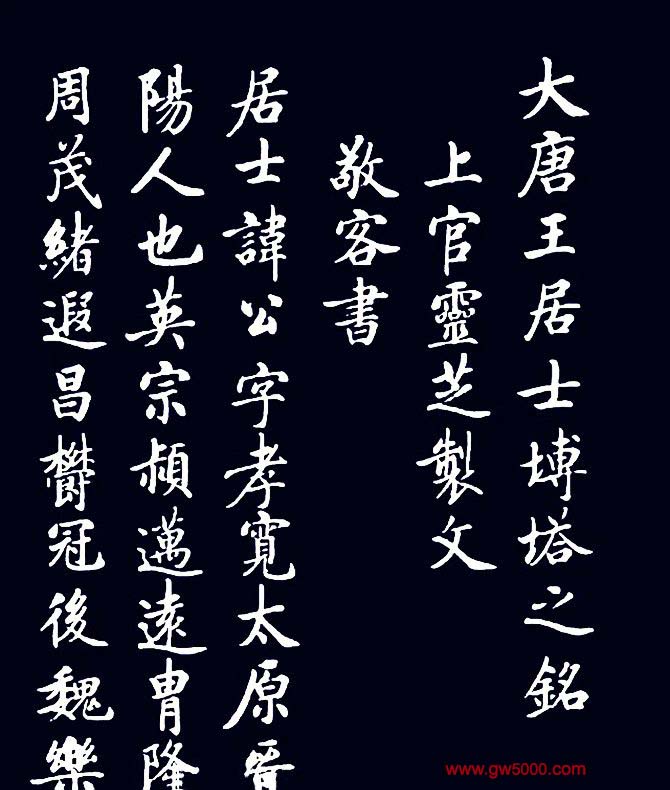 大唐王居士塼塔之銘
上官靈芝製文
敬客書
居士諱公字孝寬太原晉
陽人也英宗頴邁遠胄隆
周茂緒遐昌欝冠後魏樂
www.gw5000.com